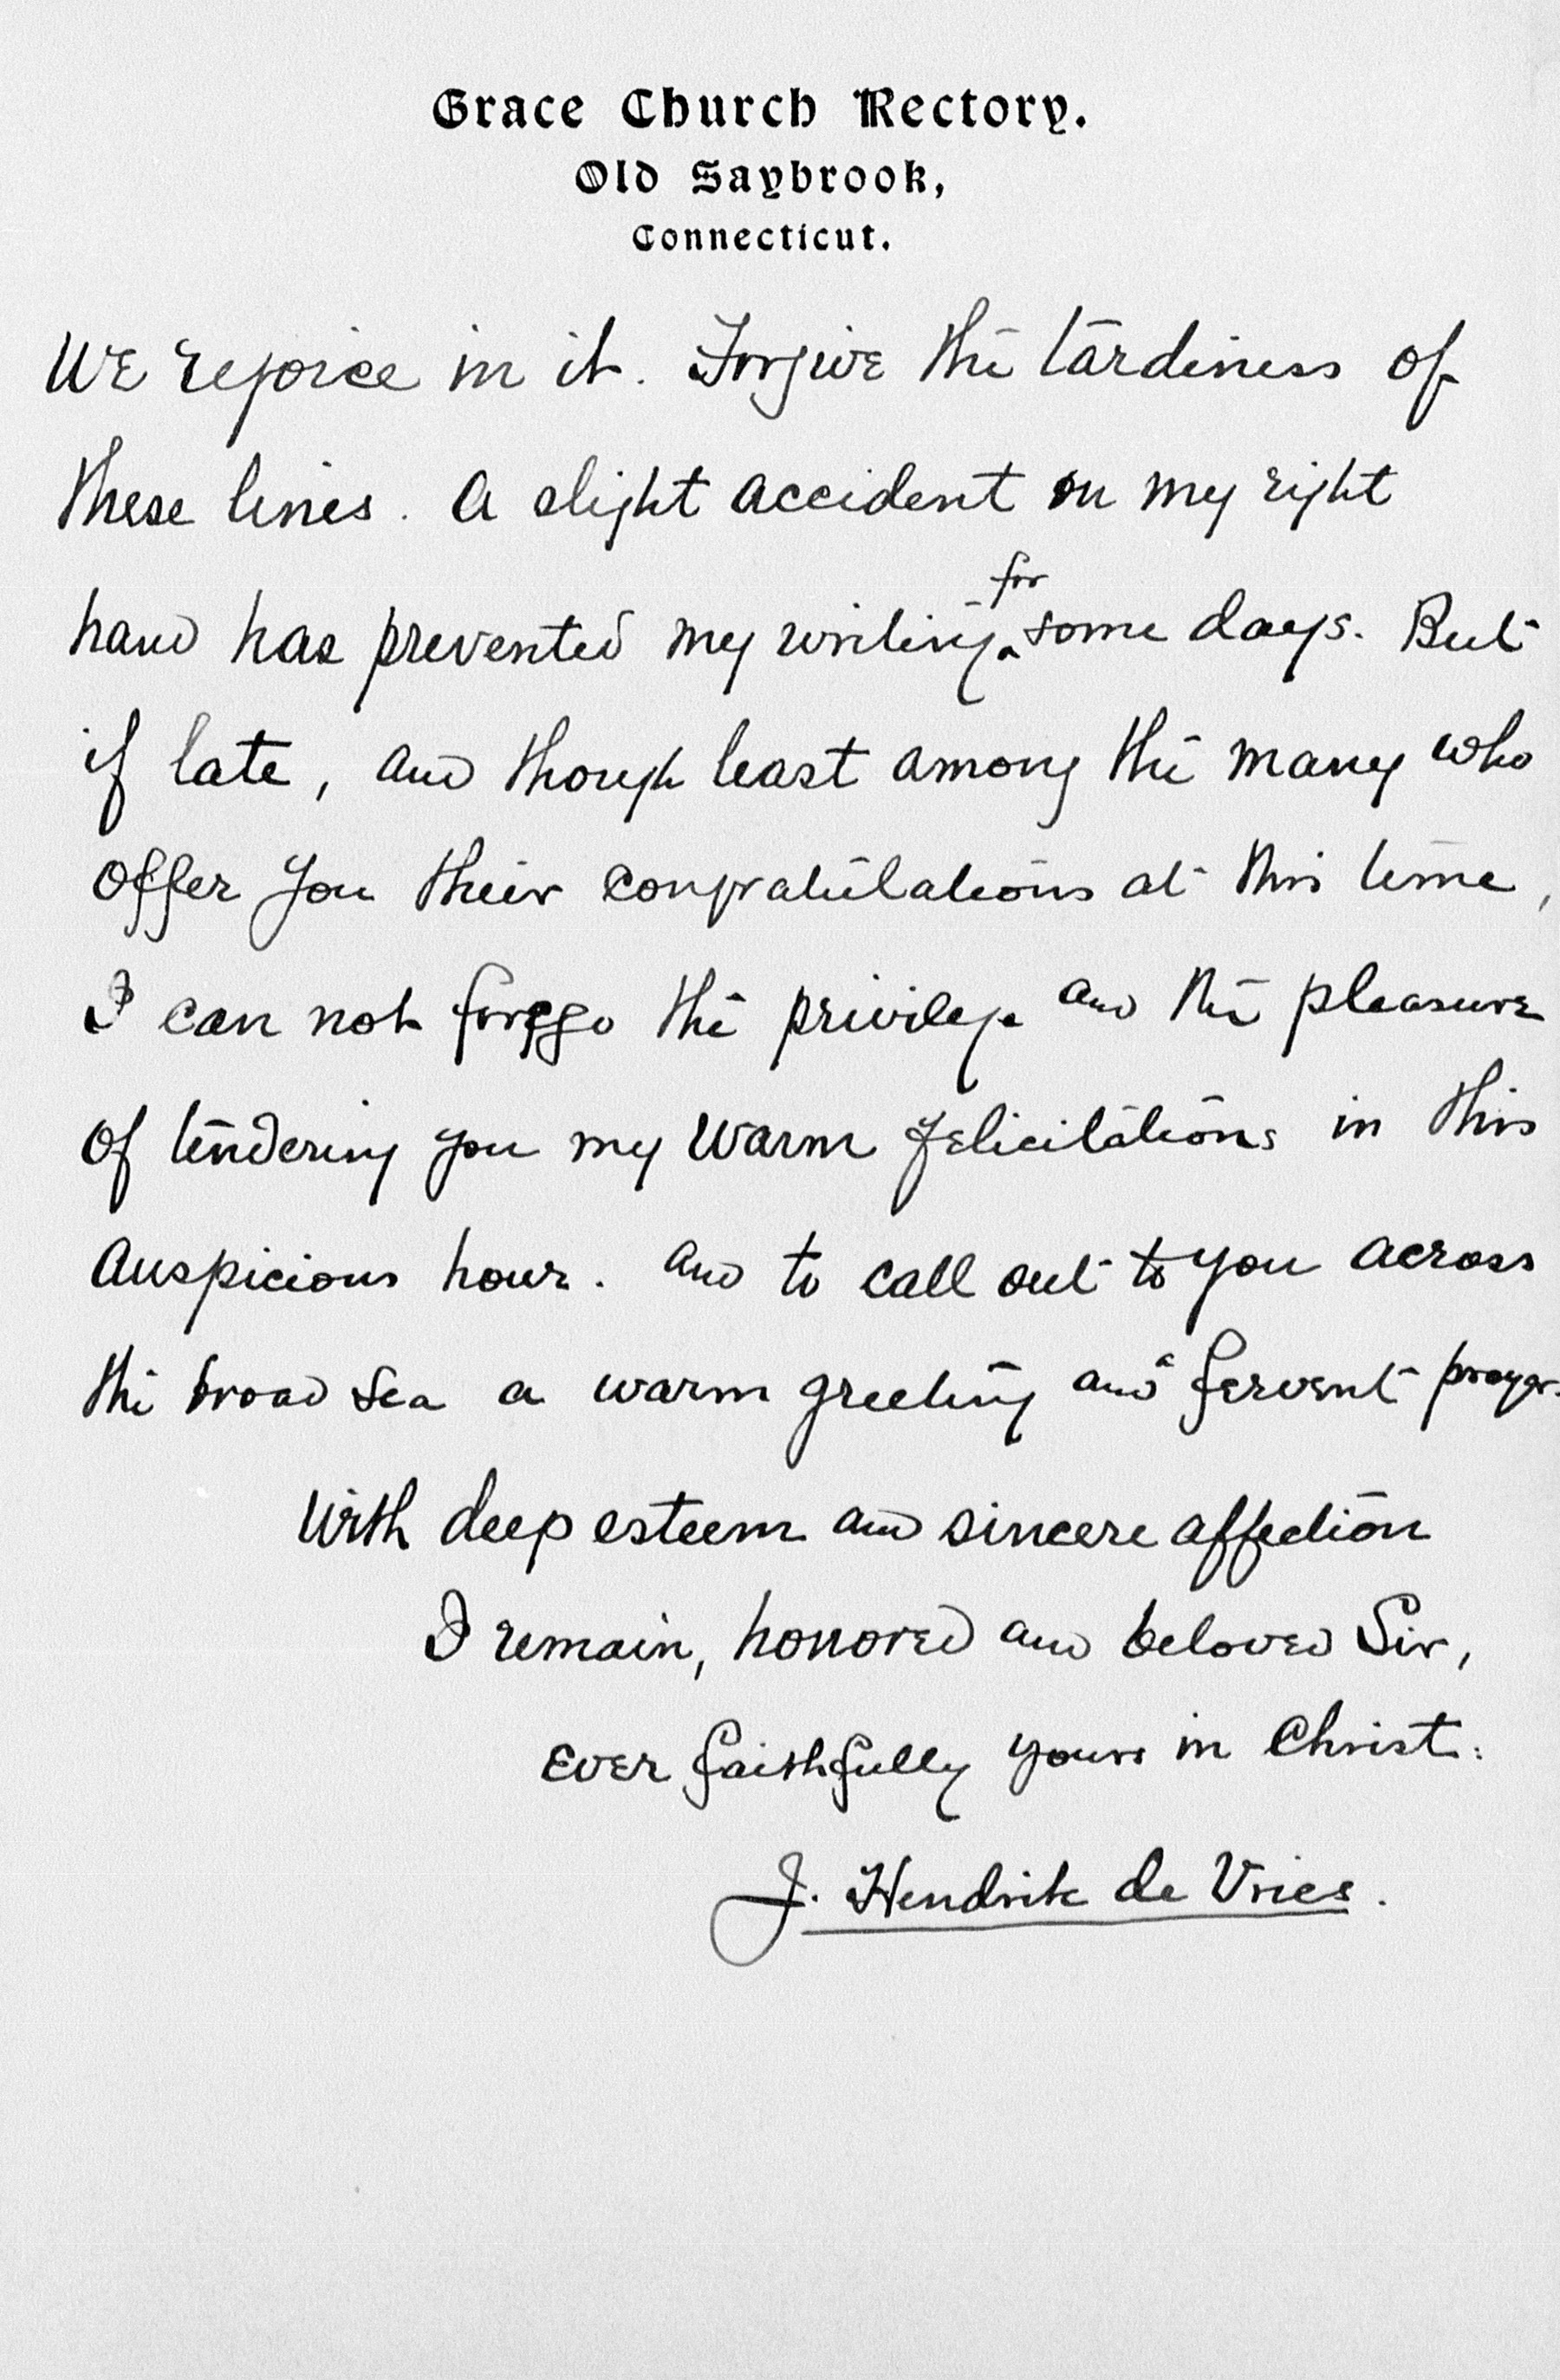 Grace Church Rectory.
Old Saybrook,
Connecticut.
We rejoice in it. Forgive the tardiness of
these lines. A slight accident on my right
hand has prevented my writing for some days. But
if late, and though least among the many who
offer you their congratulations at this time,
I can not forego the privilege and the pleasure
of tendering you my warm felicitations in this
auspicious hour. And to call out to you across
the broad sea a warm greeting and a fervent prayer.
With deep esteem and sincere affection
I remain, honored and beloved Sir,
Ever faithfully yours in Christ:
J. Hendrik de Vries.